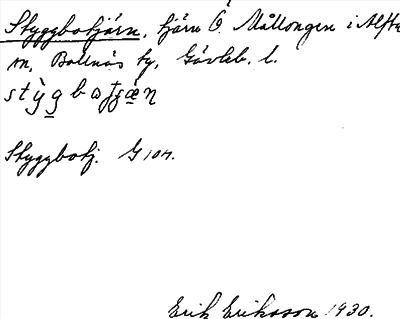 Styggbotjärn, tjärn Ö. Mållongen i Alfta
sn, Bollnäs tg, Gävleb. l.
stỳg̲botʃǽ̲n
Styggbotj. G 104.
Erik Eriksson 1930.